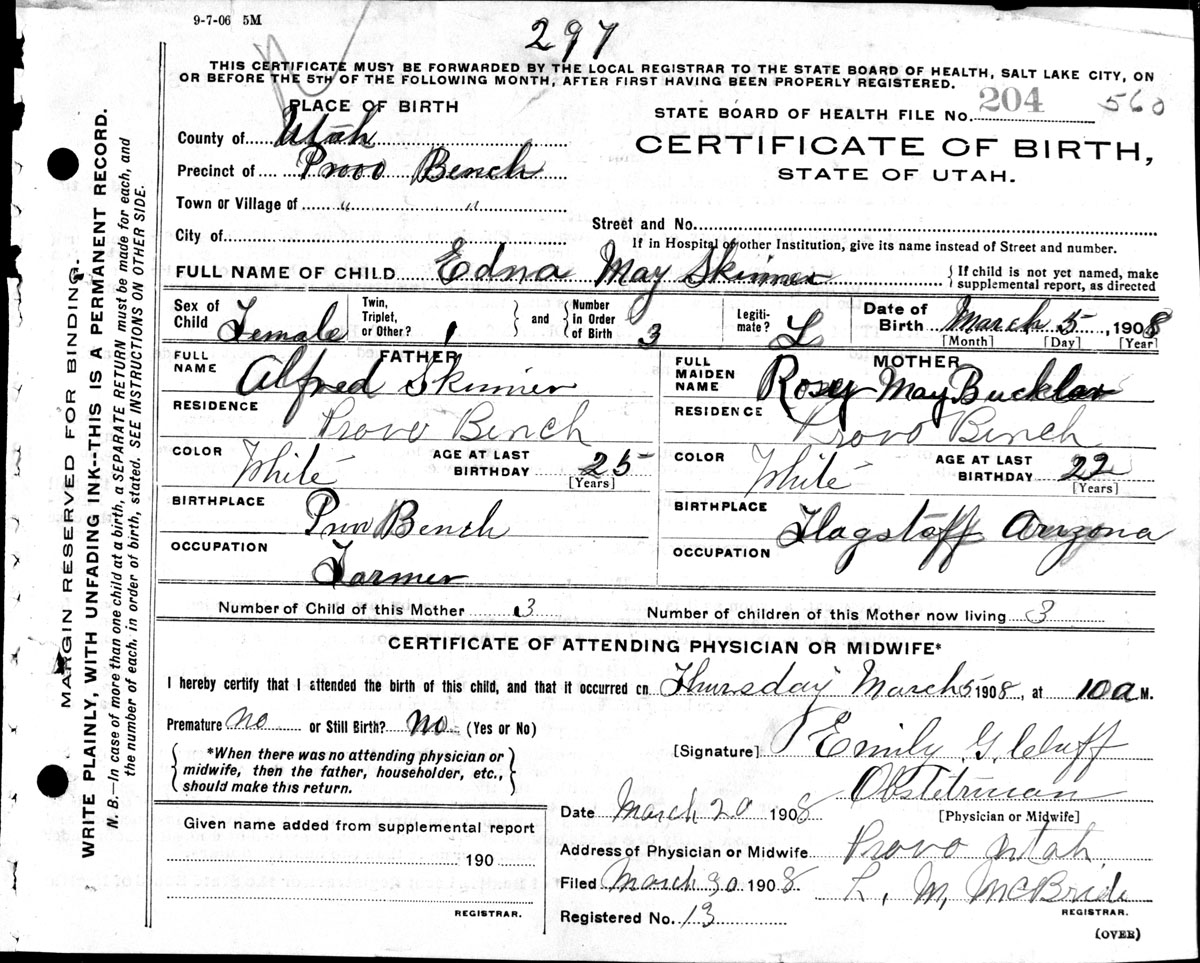 9-7-06 5M
297
THIS CERTIFICATE MUST BE FORWARDED BY THE LOCAL REGISTRAR TO THE STATE BOARD OF HEALTH, SALT LAKE CITY, ON
OR BEFORE THE 5TH OF THE FOLLOWING MONTH, AFTER FIRST HAVING BEEN PROPERLY REGISTERED.
PLACE OF BIRTH
STATE BOARD OF HEALTH FILE No. 204 560
County of Utah
CERTIFICATE OF BIRTH,
Precinct of Provo Bench
STATE OF UTAH.
Town or Village of " "
Street and No.
City of
If in Hospital or other Institution, give its name instead of Street and number.
FULL NAME OF CHILD Edna May Skinner { If child is not yet named, make supplemental report, as directed
Sex of Child Female Twin, Triplet, or Other? 1 } and { Number in Order of Birth 3 Legiti-mate? L Date of Birth March 5, 1908
[Month] [Day] [Year]
FATHER
FULL NAME Alfred Skinner
RESIDENCE Provo Bench
COLOR White AGE AT LAST BIRTHDAY 25
[Years]
BIRTHPLACE Provo Bench
OCCUPATION Farmer
MOTHER
FULL MAIDEN NAME Rosey May Bucklar
RESIDENCE Provo Bench
COLOR White AGE AT LAST BIRTHDAY 22
[Years]
BIRTHPLACE Flagstaff Arizona
OCCUPATION
Number of Child of this Mother 3 Number of children of this Mother now living 3
CERTIFICATE OF ATTENDING PHYSICIAN OR MIDWIFE*
I hereby certify that I attended the birth of this child, and that it occurred on Thursday March 5 1908, at 10 a M.
Premature no or Still Birth? no (Yes or No)
*When there was no attending physician or
midwife, then the father, householder, etc.,
should make this return.
[Signature] Emily G. Cluff
Obstetrician
[Physician or Midwife]
Date March 20 1908
Address of Physician or Midwife Provo Utah.
Filed March 30 1908 L. M. McBride
REGISTRAR.
Registered No. 13
(OVER)
Given name added from supplemental report
190
REGISTRAR.
MARGIN RESERVED FOR BINDING.
WRITE PLAINLY, WITH UNFADING INK--THIS IS A PERMANENT RECORD.
N. B.—In case of more than one child at a birth, a SEPARATE RETURN must be made for each, and
the number of each, in order of birth, stated. SEE INSTRUCTIONS ON OTHER SIDE.